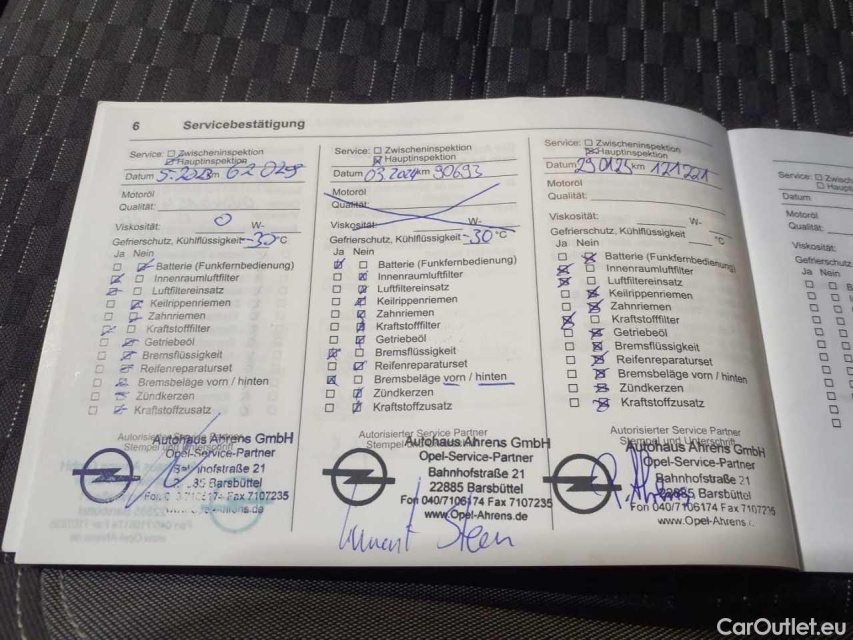 6 Servicebestätigung
Service: Zwischeninspektion
Hauptinspektion
Datum 5.2023 km 62029
Motoröl
Qualität:
0
Viskosität: W-
Gefrierschutz, Kühlflüssigkeit -30 °C
Ja Nein
Batterie (Funkfernbedienung)
Innenraumluftfilter
Luftfiltereinsatz
Keilrippenriemen
Zahnriemen
Kraftstofffilter
Getriebeöl
Bremsflüssigkeit
Reifenreparaturset
Bremsbeläge vorn / hinten
Zündkerzen
Kraftstoffzusatz
Autorisierter Service Partner
Stempel und Unterschrift
Autohaus Ahrens GmbH
Opel-Service-Partner
Bahnhofstraße 21
Barsbüttel
Fax 7107235
Service: Zwischeninspektion
Hauptinspektion
Datum 03.2024 km 90693
Motoröl
Qualität:
Viskosität: W-
Gefrierschutz, Kühlflüssigkeit -30 °C
Ja Nein
Batterie (Funkfernbedienung)
Innenraumluftfilter
Luftfiltereinsatz
Keilrippenriemen
Zahnriemen
Kraftstofffilter
Getriebeöl
Bremsflüssigkeit
Reifenreparaturset
Bremsbeläge vorn / hinten
Zündkerzen
Kraftstoffzusatz
Autorisierter Service Partner
Autohaus Ahrens GmbH
Opel-Service-Partner
Bahnhofstraße 21
22885 Barsbüttel
Fon 040/7106174 Fax 7107235
www.Opel-Ahrens.de
Service: Zwischeninspektion
Hauptinspektion
Datum 290125 km 121221
Motoröl
Qualität:
Viskosität: W-
Gefrierschutz, Kühlflüssigkeit °C
Ja Nein
Batterie (Funkfernbedienung)
Innenraumluftfilter
Luftfiltereinsatz
Keilrippenriemen
Zahnriemen
Kraftstofffilter
Getriebeöl
Bremsflüssigkeit
Reifenreparaturset
Bremsbeläge vorn / hinten
Zündkerzen
Kraftstoffzusatz
Autorisierter Service Partner
Stempel und Unterschrift
Autohaus Ahrens GmbH
Opel-Service-Partner
Bahnhofstraße 21
22885 Barsbüttel
Fon 040/7106174 Fax 7107235
www.Opel-Ahrens.
Service:
Datum
Motoröl
Qualität:
Viskosität:
Ja Nein
CarOutlet.eu